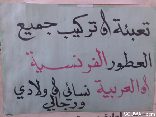 تعبئة أو تركيب جميع
العطور الفرنسية
أو العربية نسائي أو ولادي
ورجالي